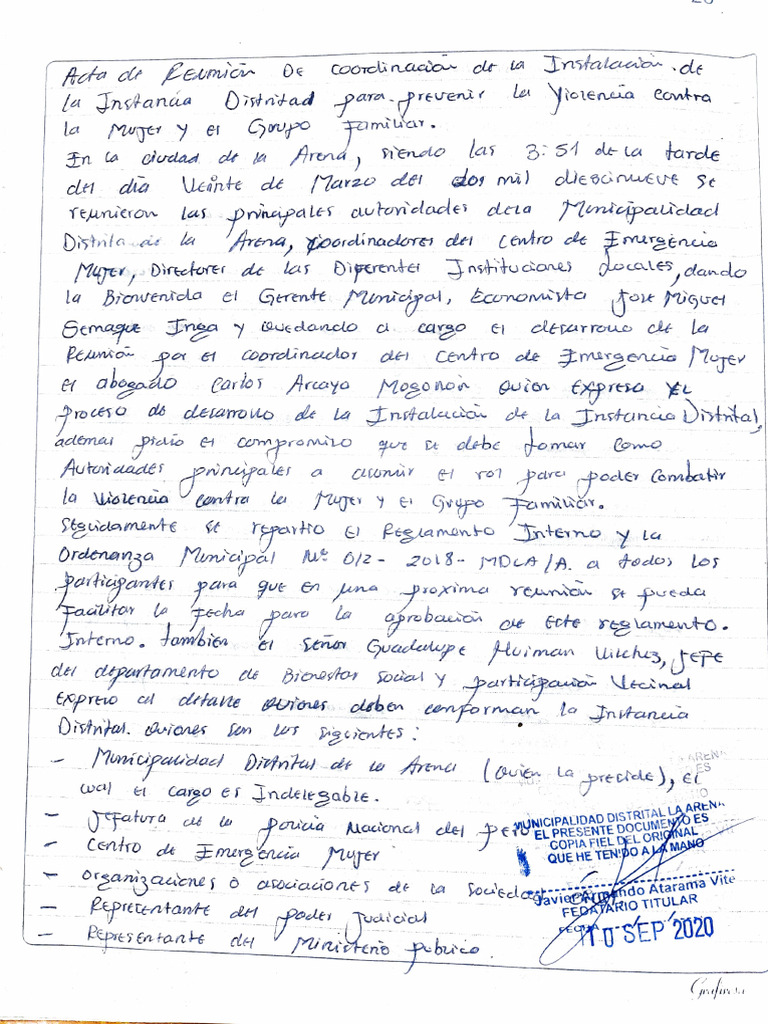 Acta de Reunión De coordinación de la Instalación de
la Instancia Distritad para prevenir la Violencia contra
la Mujer y el Grupo Familiar.
En la ciudad de la Arena, siendo las 3:51 de la tarde
del día Veinte de Marzo del dos mil diescinueve se
reunieron las principales autoridades dela Municipalidad
Distrital de la Arena, coordinadores del Centro de Emergencia
Mujer, Directores de las Diferentes Instituciones Locales, dando
la Bienvenida el Gerente Municipal, Economista Jose Miguel
Semaque Inga y quedando a cargo el desarrollo de la
Reunión por el coordinador del Centro de Emergencia Mujer
el abogado Carlos Arcaya Mogollón quien expreso el
proceso de desarrollo de la Instalación de la Instancia Distrital,
ademas pidio el compromiso que se debe tomar como
Autoridades principales a asumir el rol para poder Combatir
la Violencia contra la Mujer y el Grupo Familiar.
Seguidamente se repartio el Reglamento Interno y la
Ordenanza Municipal Nº 012- 2018- MDLA/A. a todos los
participantes para que en una proxima reunión se pueda
Facilitar la Fecha para la aprobación de este reglamento.
Interno. también el señor Guadalupe Vilchez, Jefe
del departamento de Bienestar Social y participación Vecinal
Expreso al detalle quienes deben conforman la Instancia
Distrital. quienes son los siguientes:
- Municipalidad Distrital de la Arena (quien la preside), el
cual el cargo es Indelegable.
- Jefatura de la policia Nacional del Perú
- Centro de Emergencia Mujer
- organizaciones o asociaciones de la Sociedad
- Representante del poder Judicial
- Representante del Ministerio público.
MUNICIPALIDAD DISTRITAL LA ARENA
EL PRESENTE DOCUMENTO ES
COPIA FIEL DEL ORIGINAL
QUE HE TENIDO A LA MANO
Javier Armando Atarama Vite
FEDATARIO TITULAR
FECHA
10 SEP 2020
Grafiarsa